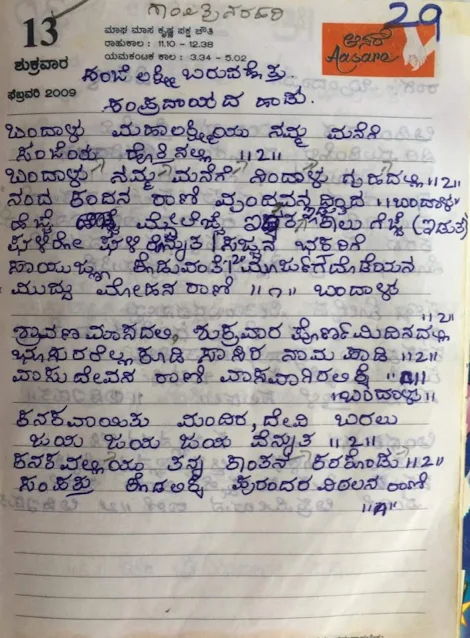 ಗಾಯತ್ರಿ ನರಹರಿ
29
13
ಶುಕ್ರವಾರ
ಫೆಬ್ರವರಿ 2009
ಮಾಘ ಮಾಸ ಕೃಷ್ಣ ಪಕ್ಷ ಚೌತಿ
ರಾಹುಕಾಲ : 11.10 - 12.38
ಯಮಕಂಟಕ ಕಾಲ : 3.34 - 5.02
ಆಸರೆ
Aasare
ಸಂಜೆ ಲಕ್ಷ್ಮಿ ಬರುವ ಹೊತ್ತು.
ಸಂಪ್ರದಾಯದ ಹಾಡು.
ಬಂದಾಳು ಮಹಾಲಕ್ಷ್ಮಿಯು ನಮ್ಮ ಮನೆಗೆ
ಸಂಜೆಯ ಹೊತ್ತಿನಲ್ಲಿ ||2||
ಬಂದಾಳು ನಮ್ಮ ಮನೆಗೆ ನಿಂದಾಳು ಗೃಹದಲ್ಲಿ ||2||
ನಂದ ಕಂದನ ರಾಣಿ ||ಬಂದಾಳು||
ಹೆಜ್ಜೆ ಮೇಲೆಜ್ಜೆ ಕಾಲು ಗೆಜ್ಜೆ (ಇಡುತ)
ಘಳಿರೋ ಘಳಿರೆನ್ನುತ | ಸಜ್ಜನ ಭಕ್ತರಿಗೆ
ಸಾಯುಜ್ಯ ಕೊಡುವಂತೆ ||2||
ಮುದ್ದು ಮೋಹನ ರಾಣಿ ||1|| ಬಂದಾಳು
||2||
ಶ್ರಾವಣ ಮಾಸದಲಿ, ಶುಕ್ರವಾರ ಪೂರ್ಣಮಿ ದಿನದಲ್ಲಿ
ಭೂಸುರರೆಲ್ಲ ಕೂಡಿ ಸಾವಿರ ನಾಮ ಹಾಡಿ ||2||
ವಾಸುದೇವನ ರಾಣಿ ವಾಸವಾಗಿರಲಿಕ್ಕೆ
||ಬಂದಾಳು||
ಕನಕವಾಯಿತು ಮಂದಿರ, ದೇವಿ ಬರಲು
ಜಯ ಜಯ ಜಯ ವೆನ್ನುತ ||2||
ಕನಕವಲ್ಲಿಯು ತನ್ನ ಕಾಂತನ ಕರಕೊಂಡು ||2||
ಸಂಪತ್ತು ಕೊಡಲಿಕ್ಕೆ ಪುರಂದರ ವಿಠಲನ ರಾಣಿ